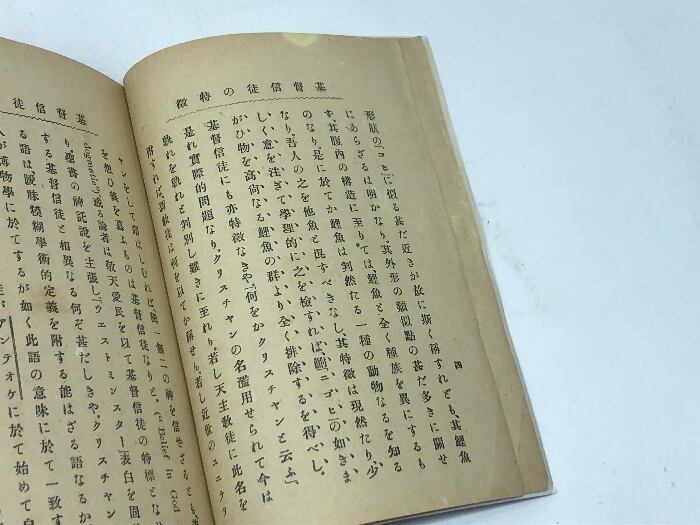 基督信徒の特徴
四
形狀の「コヒ」に似る甚だ近きが故に斯く稱すれども、其鯉魚
にあらざるは明かなり、其外形の類似點の甚だ多きに關せ
ず、其腹內の構造に至りては、鯉魚と全く種族を異にするも
のなり、是に於てか鯉魚は判然たる一種の動物なるを知る
なり、吾人の之を他魚と混すべきなし、其特徴は現然たり、少
しく意を注ぎて學理的に之を檢すれば、鮒「ニゴヒ」の如きま
がひ物を高尚なる鯉魚の群より全く排除するを得べし、
基督信徒にも亦特徴なきや、「何をかクリスチャンと云ふ」、
是れ實際的問題なり、クリスチャンの名濫用せられて今は
孰れを孰れと判別し難きに至れり、若し天主教徒に此名を
附すれば、新教徒は何を以てか稱せん、若し近世のユニテリ
基督信徒
ヤンをして
唯一無二の神を信ぜざるとも
を慕ふものは基督信徒なりと、("Belief in God
dogmatism")或る論者は敬天愛民を以て基督信徒の特標となし
聖書の神託說を主張し「ウエストミンスター」表白を固
する基督信徒と相異なる何ぞ甚だしきや、クリスチャン
る語は、曖昧糢糊學術的定義を附する能はざる語なるか
博物學に於てするが如く此語の意味に於て一致す
アンテオケに於て始めて